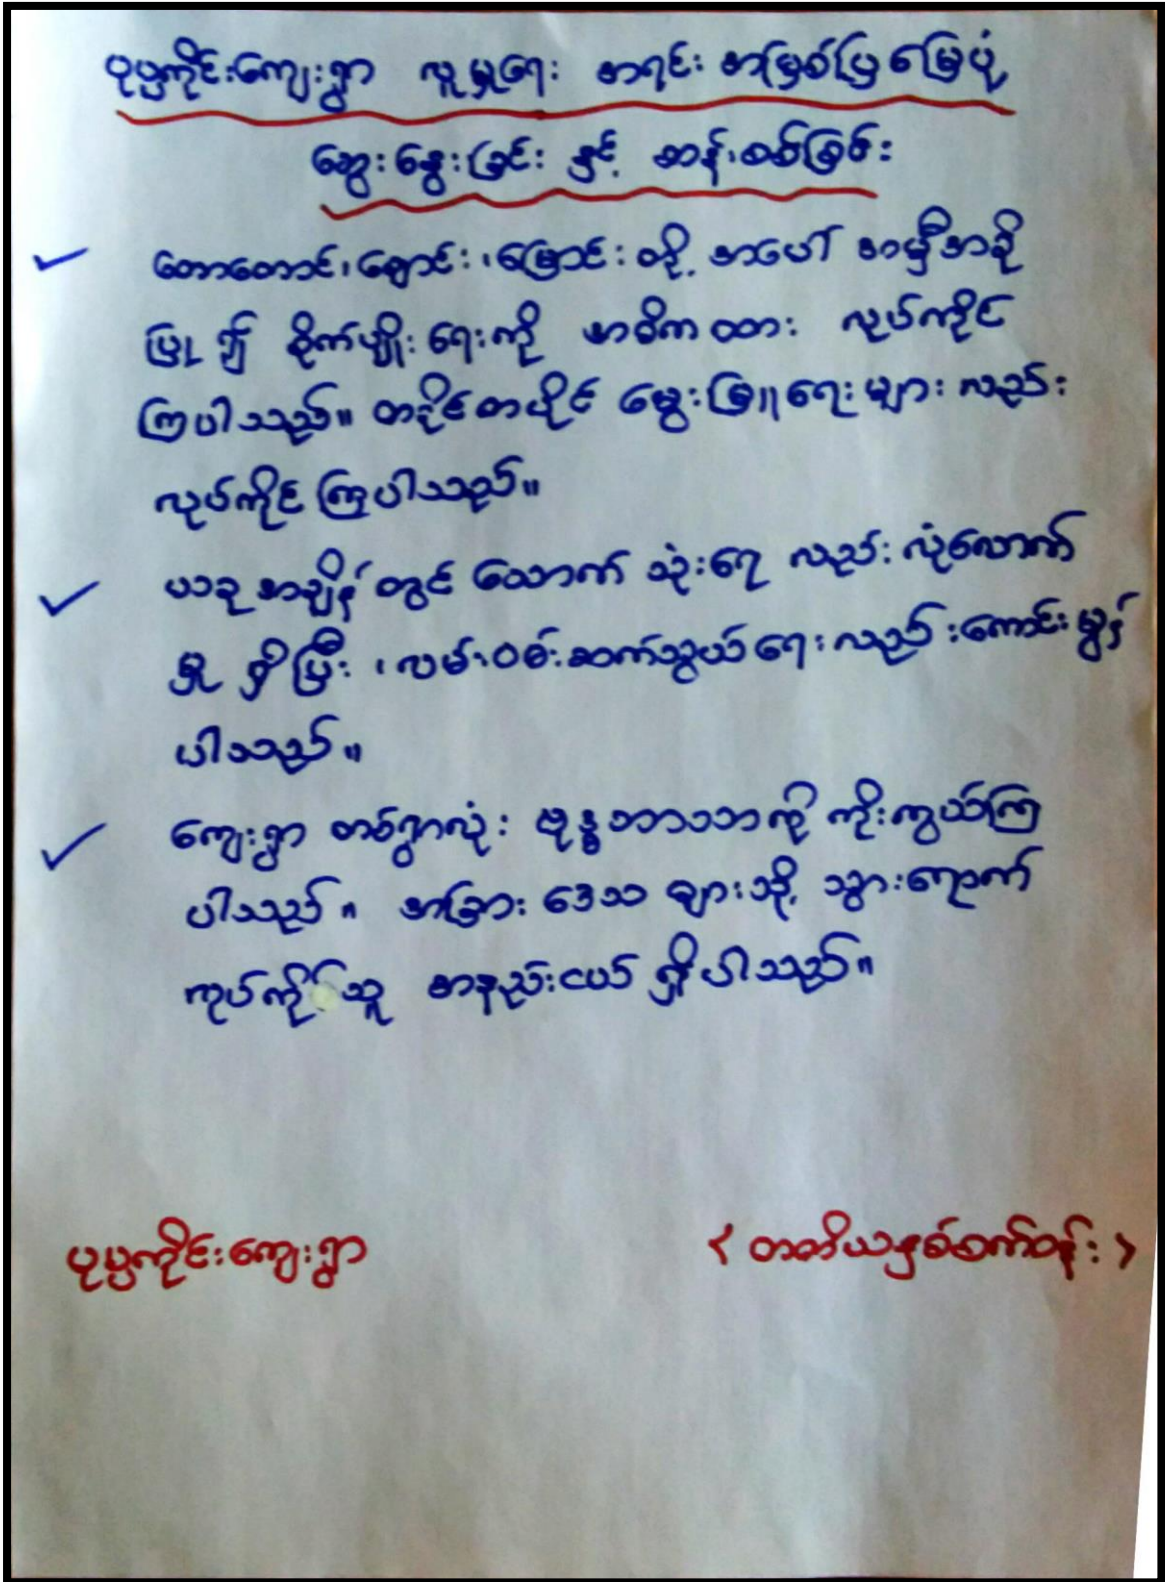 ပုပ္ပကိုင်းကျေးရွာ လူမှုရေး အရင်း အမြစ်ပြ မြေပုံ
ဆွေးနွေးခြင်း နှင့် ဆန်းစစ်ခြင်း
တောတောင်၊ချောင်း၊မြောင်းတို့ အပေါ် အမှီအခို
ပြု၍ စိုက်ပျိုးရေးကို အဓိကထား လုပ်ကိုင်
ကြပါသည်။ တနိုင်တပိုင် မွေးမြူရေးများ လည်း
လုပ်ကိုင် ကြပါသည်။
ယခု အချိန်တွင် သောက် သုံးရေ လည်း လုံလောက်
မှု ရှိပြီး ၊လမ်းပမ်းဆက်သွယ်ရေး လည်းကောင်းမွန်
ပါသည်။
ကျေးရွာ တစ်ရွာလုံး ဗုဒ္ဓဘာသာကို ကိုးကွယ်ကြ
ပါသည်။ အခြား ဒေသ များသို့ သွားရောက်
လုပ်ကိုင်သူ အနည်းငယ် ရှိပါသည်။
ပုပ္ပကိုင်းကျေးရွာ
< တတိယနှစ်စက်ဝန်း >